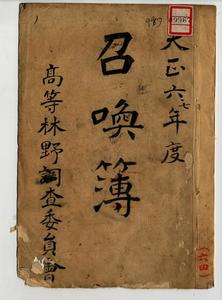 大正六七年度
召喚簿
高等林野調査委員會
987
9967
(六四)